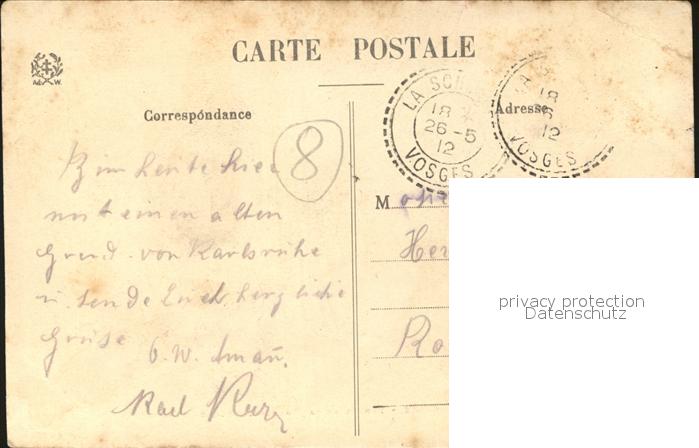 CARTE POSTALE
A. W.
Correspondance
Adresse
LA SC
18
26-5
12
VOSGES
LA
18
12
VOSGES
8
Bin heute hier
mit einen alten
Freund von Karlsruhe
u. sende Euch herzliche
Grüse
Karl
M
Her
Ro
privacy protection
Datenschutz